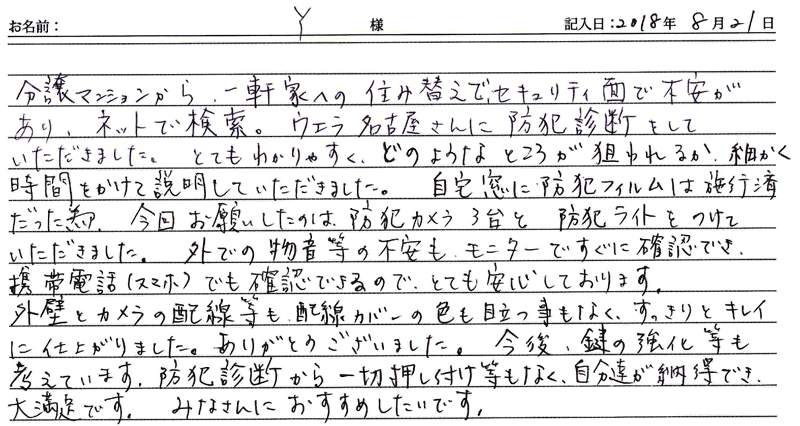 お名前： Y 様 記入日：2018年 8月21日
分譲マンションから、一軒家への住み替えで、セキュリティ面で不安が
あり、ネットで検索。ウエラ名古屋さんに防犯診断をして
いただきました。とてもわかりやすく、どのような所が狙われるか、細かく
時間をかけて説明していただきました。自宅窓に防犯フィルムは施行済
だった為、今回お願いしたのは、防犯カメラ3台と防犯ライトをつけて
いただきました。外での物音等の不安も、モニターですぐに確認でき、
携帯電話（スマホ）でも確認できるので、とても安心しております。
外壁とカメラの配線等も、配線カバーの色も目立つ事もなく、すっきりとキレイ
に仕上がりました。ありがとうございました。今後、鍵の強化等も
考えています。防犯診断から一切押し付け等もなく、自分達が納得でき、
大満足です。みなさんにおすすめしたいです。